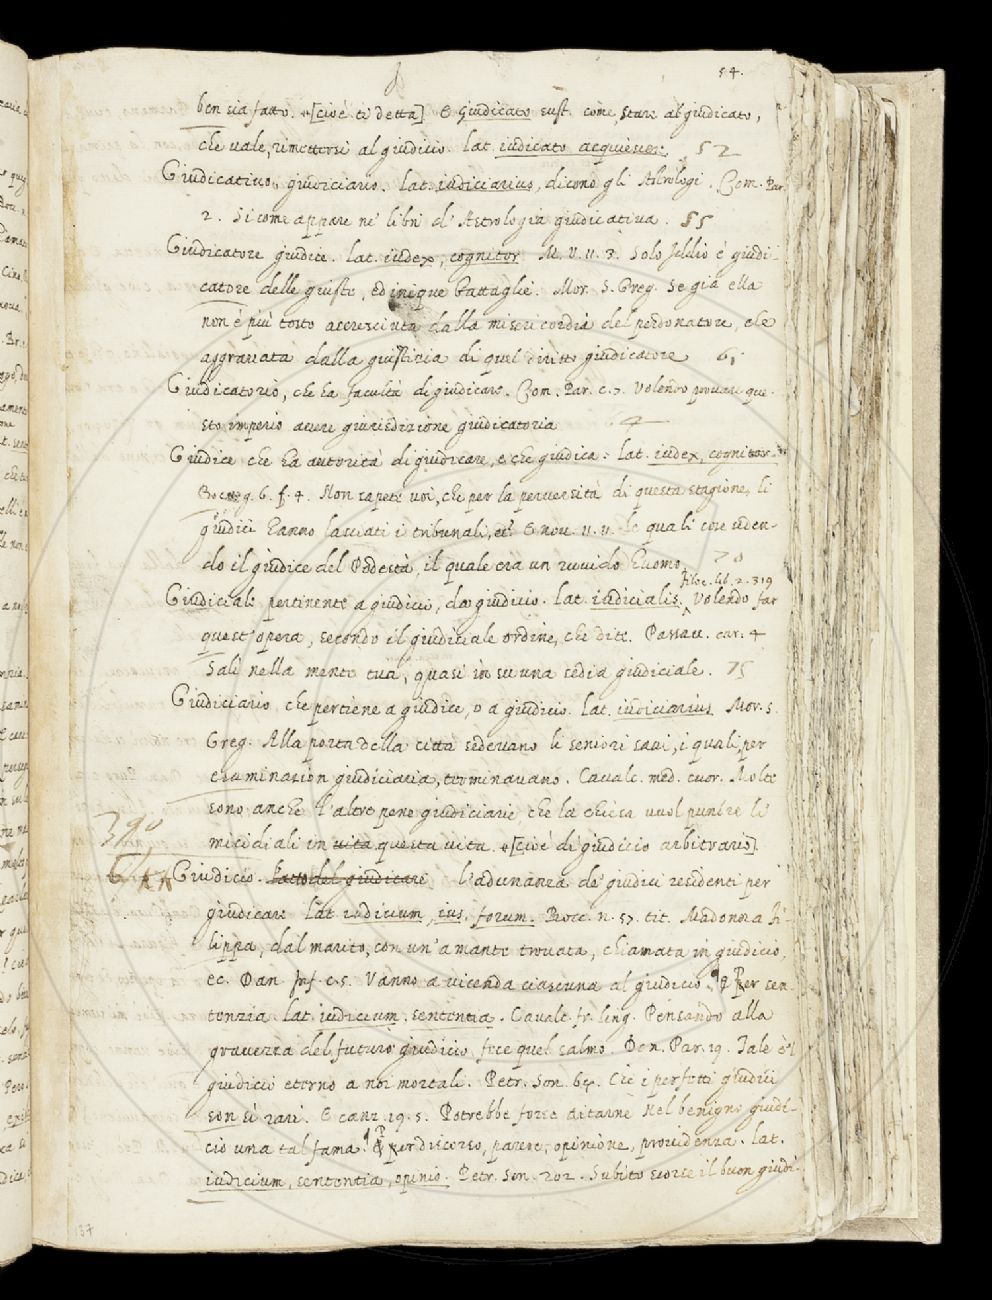 54.
ben sia fatto. +[cioè tè detta] E giudicato sust. come, stare al giudicato,
che vale, rimettersi al giudicio. Lat. iudicato acquiescer. 52
Giudicativo, giudiciario. Lat. iudiciarius, dicono gli Astrologi. Com. Par.
2. Si come appare ne' libri d'Astrologia giudicativa. 55
Giudicatore giudice. Lat. iudex, cognitor M. V. 11. 3. Solo Iddio è giudi-
catore delle giuste, ed inique battaglie. Mor. S. Greg. Se già ella
non è più tosto accresciuta dalla misericordia del perdonatore, che
aggravata dalla giustizia di quel diritto giudicatore 61
Giudicatorio, che ha facultà di giudicare. Com. Par. c. 7. Volendo provare que-
sto imperio avere giurisdizione giudicatoria 64
Giudice che ha autorità di giudicare, e che giudica: Lat. iudex, cognitor
Bocc. g. 6. f. 4. Non sapete voi, che per la perversità di questa stagione, li
giudici hanno lasciati i tribunali, ec. E nov. 11. 11. Le quali cose uden-
do il giudice del Podestà, il quale era un ruvido huomo. 70
Filoc. lib. 2. 319
Giudiciale pertinente a giudicio, da giudicio. Lat. iudicialis. Volendo far
quest'opera, secondo il giudiciale ordine, che dite. Passav. car. 4
Sali nella mente tua, quasi in su una sedia giudiciale. 75
Giudiciario, che pertiene a giudice, o a giudicio. Lat. iudiciarius Mor. S.
Greg. Alla porta della città sedevano li seniori savi, i quali per
esaminazion giudiciaria, terminavano. Cavalc. med. cuor. Molte
sono anche l'altre pene giudiciarie, che la chiesa vuol punire li
390
micidiali in vita questa vita. +[cioè di giudicio arbitrario]
Giudicio. Fatto del giudicare l'adunanza de' giudici residenti per
giudicare Lat. iudicium, ius, forum. Bocc. n. 57. tit. Madonna Fi-
lippa, dal marito, con un'amante trovata, chiamata in giudicio,
ec. Dan. Inf. c. 5. Vanno a vicenda ciascuna al giudicio. Per sen-
tenzia Lat. iudicium, sententia. Cavalc. fr. ling. Pensando alla
gravezza del futuro giudicio fece quel salmo. Dan. Par. 19. Tale è 'l
giudicio eterno a noi mortali. Petr. Son. 64. Che i perfetti giudici
son sì rari. E canz. 19. 5. Potrebbe forse aitarme Nel benigno giudi-
cio una tal fama. Per discorso, parere, opinione, providenza. Lat.
iudicium, sententia, opinio. Petr. Son. 202. Subito scorse il buon giudi-
137